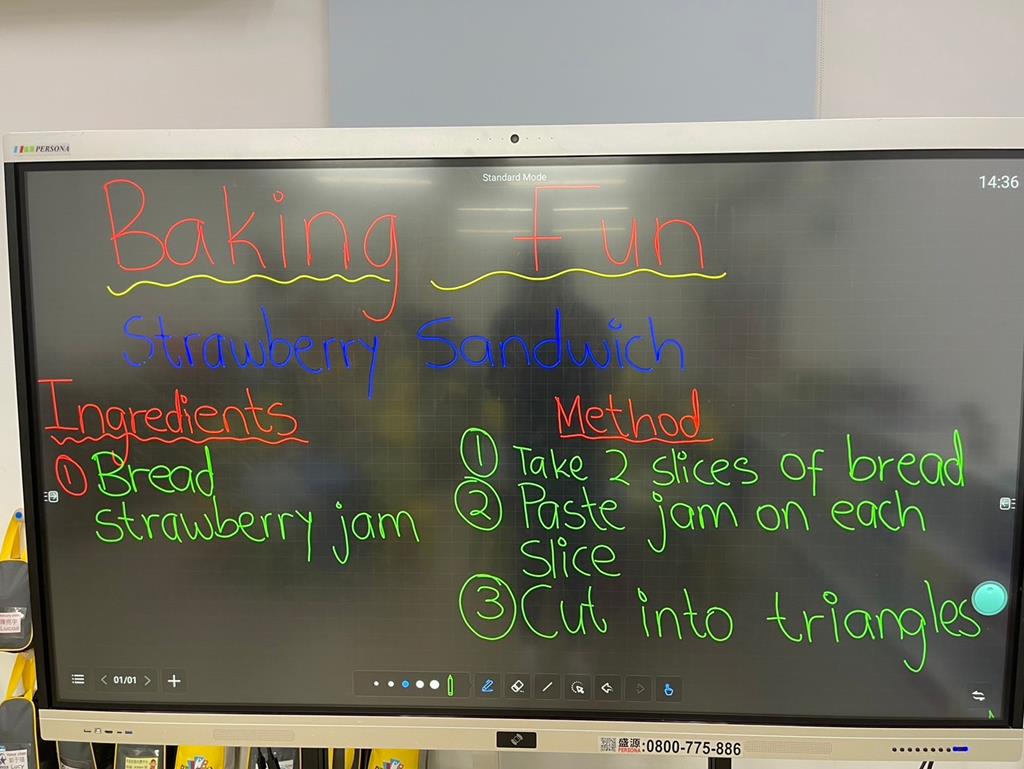 PERSONA
Standard Mode
14:36
Baking Fun
Strawberry Sandwich
Ingredients
① Bread
strawberry jam
Method
① Take 2 slices of bread
② Paste jam on each
slice
③ Cut into triangles
01/01
盛源 PERSONA :0800-775-886
Lucas
Lucy